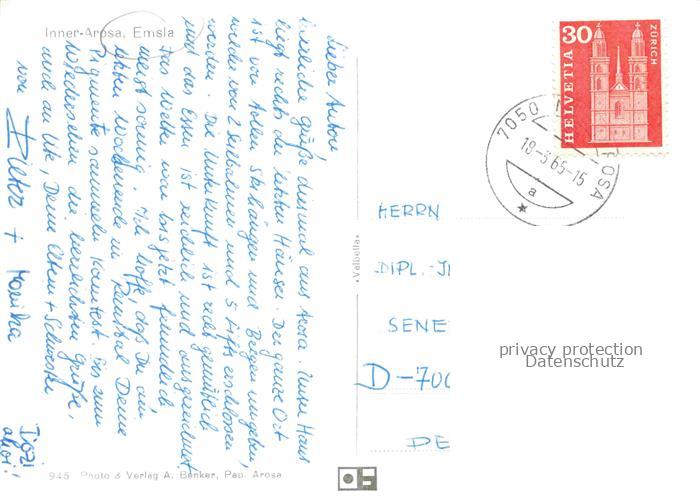 Inner-Arosa, Emsla
Lieber Anton,
herzliche Grüße diesmal aus Arosa. Unser Haus
liegt rechts der letzten Häuser. Der ganze Ort
ist von tollen Skihängen und Bergen umgeben,
welche von 2 Seilbahnen und 5 Lifts erschlossen
werden. Die Unterkunft ist recht gemütlich
und das Essen ist reichlich und ausgezeichnet.
Das Wetter war bis jetzt freundlich
meist sonnig. Ich hoffe, daß Du am
letzten Wochenende in Deine
Pigmente sammeln konntest. Bis zum
Wiedersehn die herzlichsten Grüße,
auch an Ute, Deine Eltern + Schwester
von
Dieter + Monika
ahoi!
945 Photo & Verlag A. Benker, Pap. Arosa
"Velbella"
30
HELVETIA
ZÜRICH
7050
ROSA
18-3 65-15
a
HERRN
DIPL.-I
SENE
D-700
DE
privacy protection
Datenschutz